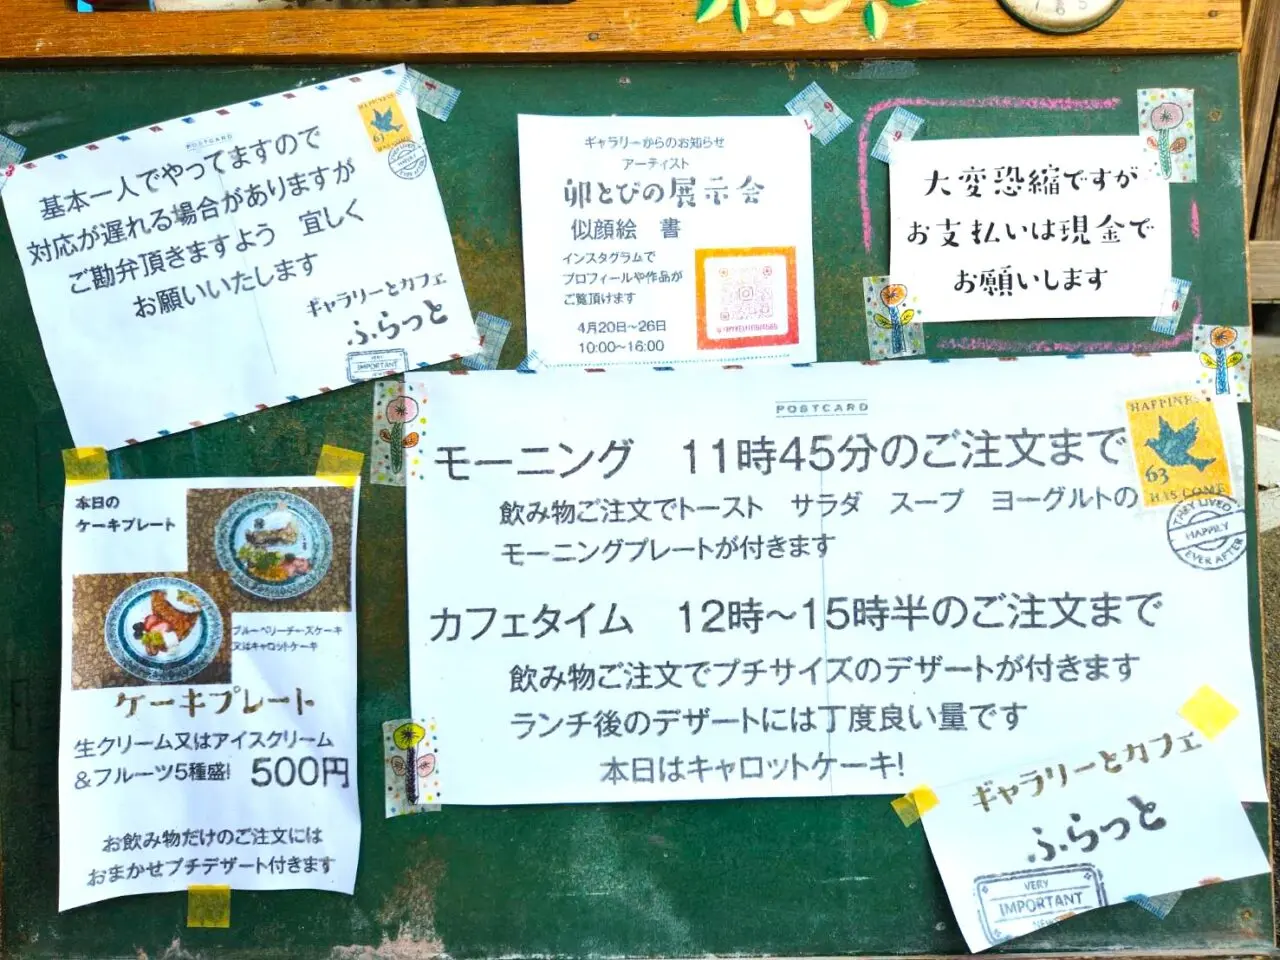 POSTCARD
基本一人でやってますので
対応が遅れる場合がありますが
ご勘弁頂きますよう 宜しく
お願いいたします
ギャラリーとカフェ
ふらっと
VERY
IMPORTANT
HAPPINESS
63
ギャラリーからのお知らせ
アーティスト
卯とぴの展示会
似顔絵 書
インスタグラムで
プロフィールや作品が
ご覧頂けます
4月20日〜26日
10:00〜16:00
大変恐縮ですが
お支払いは現金で
お願いします
本日の
ケーキプレート
ブルーベリーチーズケーキ
又はキャロットケーキ
ケーキプレート
生クリーム又はアイスクリーム
&フルーツ5種盛! 500円
お飲み物だけのご注文には
おまかせプチデザート付きます
POSTCARD
モーニング 11時45分のご注文まで
飲み物ご注文でトースト サラダ スープ ヨーグルトの
モーニングプレートが付きます
カフェタイム 12時〜15時半のご注文まで
飲み物ご注文でプチサイズのデザートが付きます
ランチ後のデザートには丁度良い量です
本日はキャロットケーキ!
HAPPINESS
63
HAS COME
THEY LIVED
HAPPILY
EVER AFTER
ギャラリーとカフェ
ふらっと
VERY
IMPORTANT